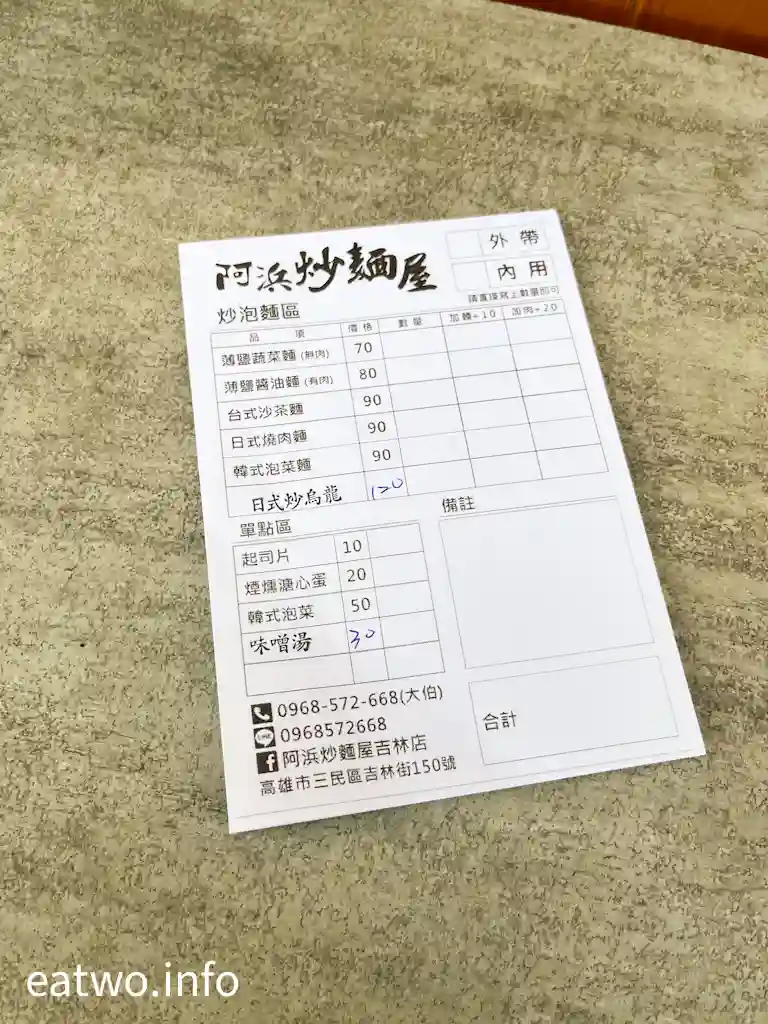 外帶
內用
阿浜炒麵屋
請直接寫上數量即可
炒泡麵區
品項 價格 數量 加麵+10 加肉+20
薄鹽蔬菜麵(無肉) 70
薄鹽醬油麵(有肉) 80
台式沙茶麵 90
日式燒肉麵 90
韓式泡菜麵 90
日式炒烏龍 120
單點區
起司片 10
煙燻溏心蛋 20
韓式泡菜 50
味噌湯 30
備註
合計
0968-572-668(大伯)
LINE 0968572668
f 阿浜炒麵屋吉林店
高雄市三民區吉林街150號
eatwo.info